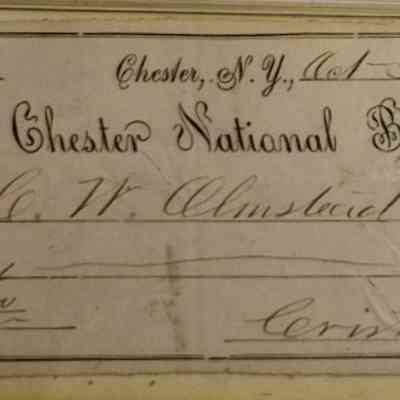 Chester, N. Y., Oct
Chester National B
C. W. Olmstead